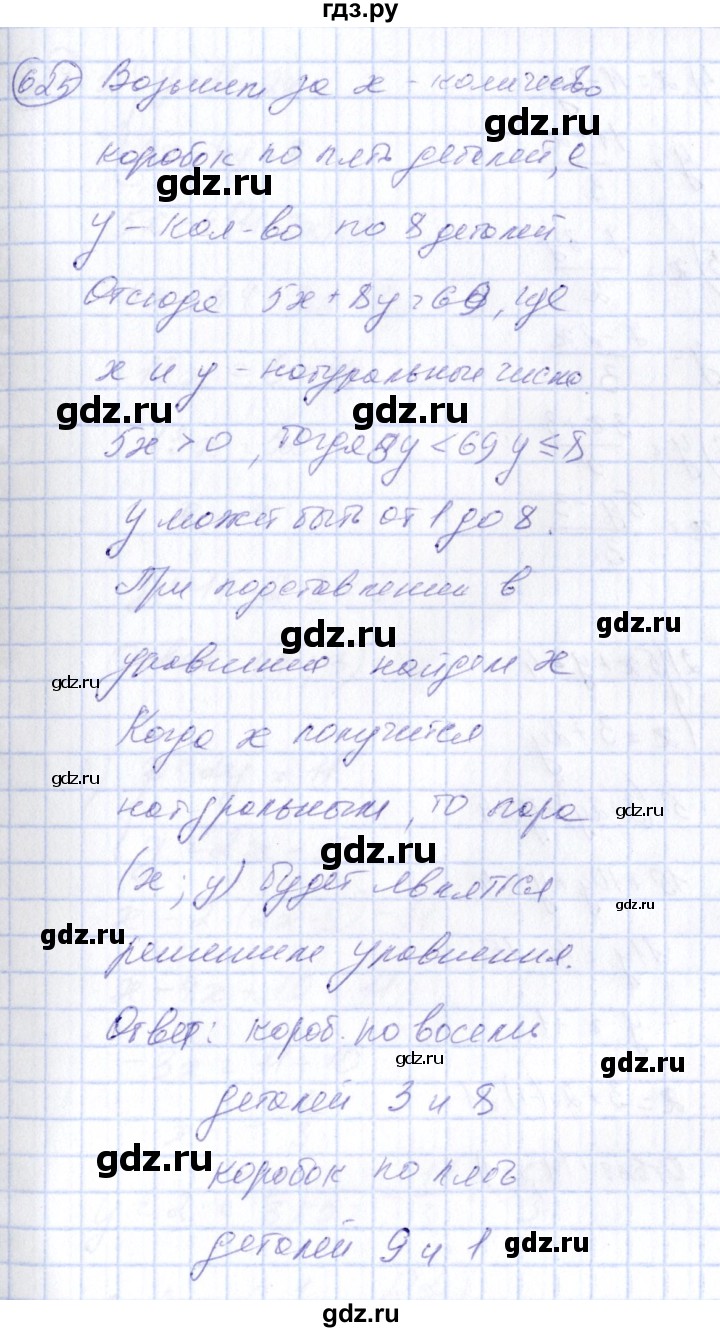 гдз.ру
625 Возьмем за x - количество
gdz.ru
коробок по пять деталей, а
gdz.ru
y - кол-во по 8 деталей.
Отсюда 5x + 8y = 69, где
x и y - натуральные числа.
gdz.ru gdz.ru
5x > 0, тогда 8y < 69 y ≤ 8
y может быть от 1 до 8.
При подставлении в
gdz.ru gdz.ru
уравнения найдем x.
gdz.ru
Когда x получится
gdz.ru
натуральным, то пара
gdz.ru
gdz.ru
(x; y) будет являться
gdz.ru
gdz.ru
решением уравнения.
Ответ: короб. по восемь
gdz.ru
gdz.ru
деталей 3 и 8
gdz.ru
коробок по пять
деталей 9 и 1
gdz.ru
gdz.ru